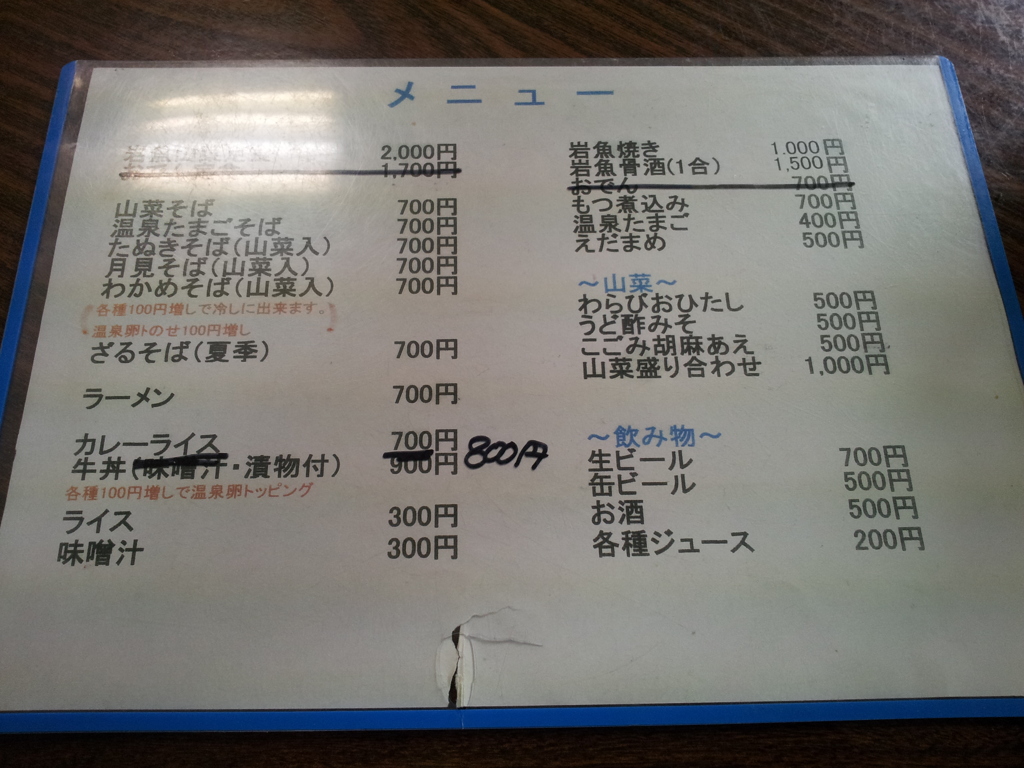 メニュー
2,000円
1,700円
山菜そば 700円
温泉たまごそば 700円
たぬきそば(山菜入) 700円
月見そば(山菜入) 700円
わかめそば(山菜入) 700円
各種100円増しで冷しに出来ます。
温泉卵トのせ100円増し
ざるそば(夏季) 700円
ラーメン 700円
カレーライス 700円 800円
牛丼(味噌汁・漬物付) 900円
各種100円増しで温泉卵トッピング
ライス 300円
味噌汁 300円
岩魚焼き 1,000円
岩魚骨酒(1合) 1,500円
おでん 700円
もつ煮込み 700円
温泉たまご 400円
えだまめ 500円
~山菜~
わらびおひたし 500円
うど酢みそ 500円
こごみ胡麻あえ 500円
山菜盛り合わせ 1,000円
~飲み物~
生ビール 700円
缶ビール 500円
お酒 500円
各種ジュース 200円